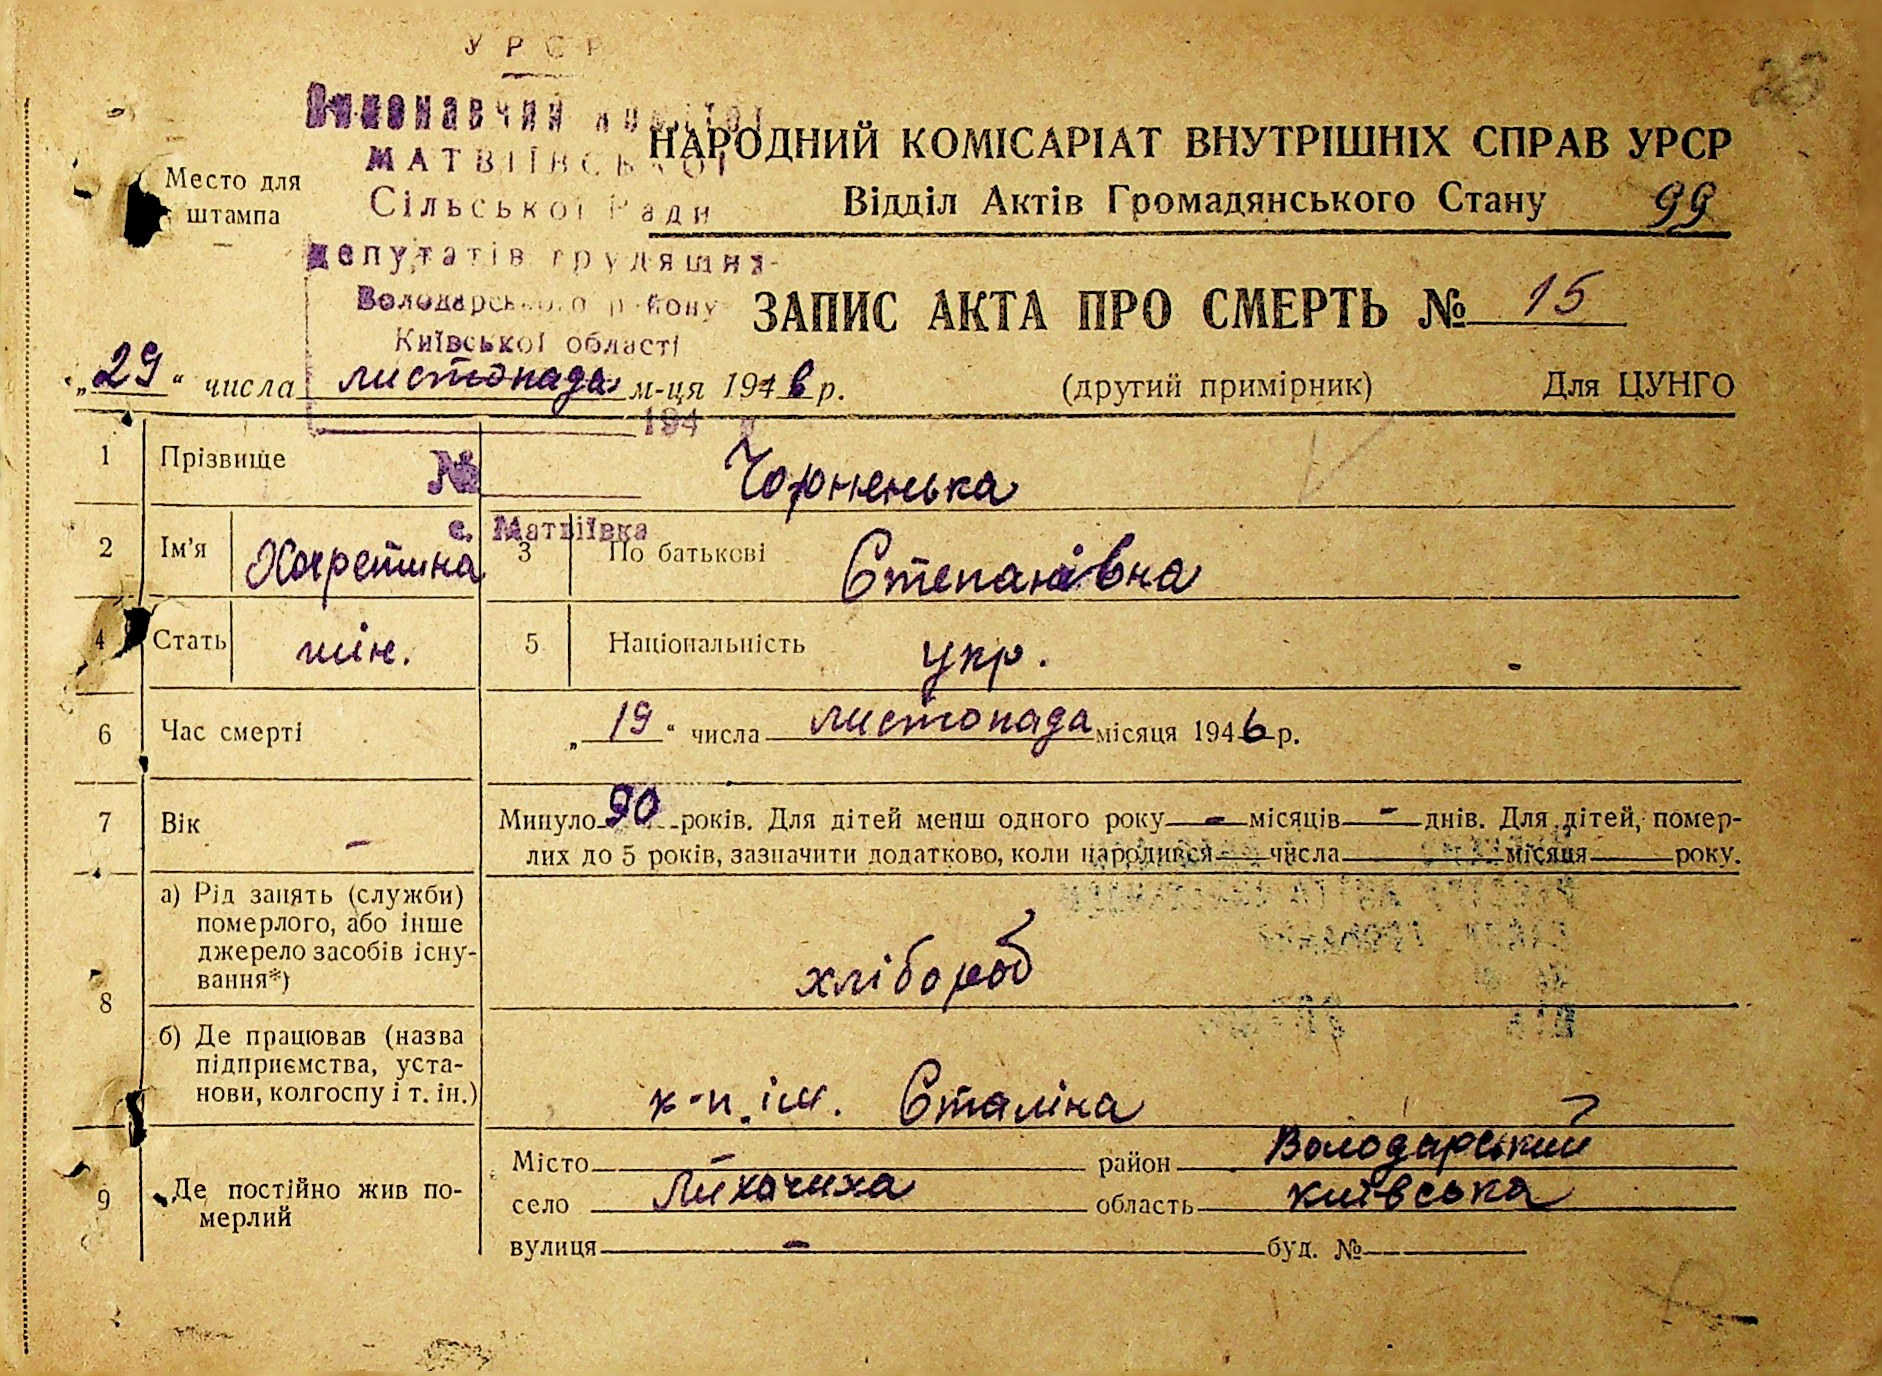 УРСР
Виконавчий комітет
МАТВІЇВСЬКОЇ
Сільської Ради
депутатів трудящих
Володарського району
Київської області
194 р
№
с. Матвіївка
Место для
штампа
НАРОДНИЙ КОМІСАРІАТ ВНУТРІШНІХ СПРАВ УРСР
Відділ Актів Громадянського Стану 99
ЗАПИС АКТА ПРО СМЕРТЬ № 15
„29“ числа листопада м-ця 1946 р. (другий примірник) Для ЦУНГО
1 Прізвище Чорненька
2 Ім’я Хрретина 3 По батькові Степанівна
4 Стать жін. 5 Національність укр.
6 Час смерті „19“ числа листопада місяця 1946 р.
7 Вік - Минуло 90 років. Для дітей менш одного року - місяців - днів. Для дітей, помер-
лих до 5 років, зазначити додатково, коли народився числа місяця року.
8 а) Рід занять (служби)
померлого, або інше
джерело засобів існу-
вання*)
хлібороб
б) Де працював (назва
підприємства, уста-
нови, колгоспу і т. ін.)
к-п. ім. Сталіна
9 Де постійно жив по-
мерлий
Місто - район Володарський
село Лихачиха область Київська
вулиця - буд. №